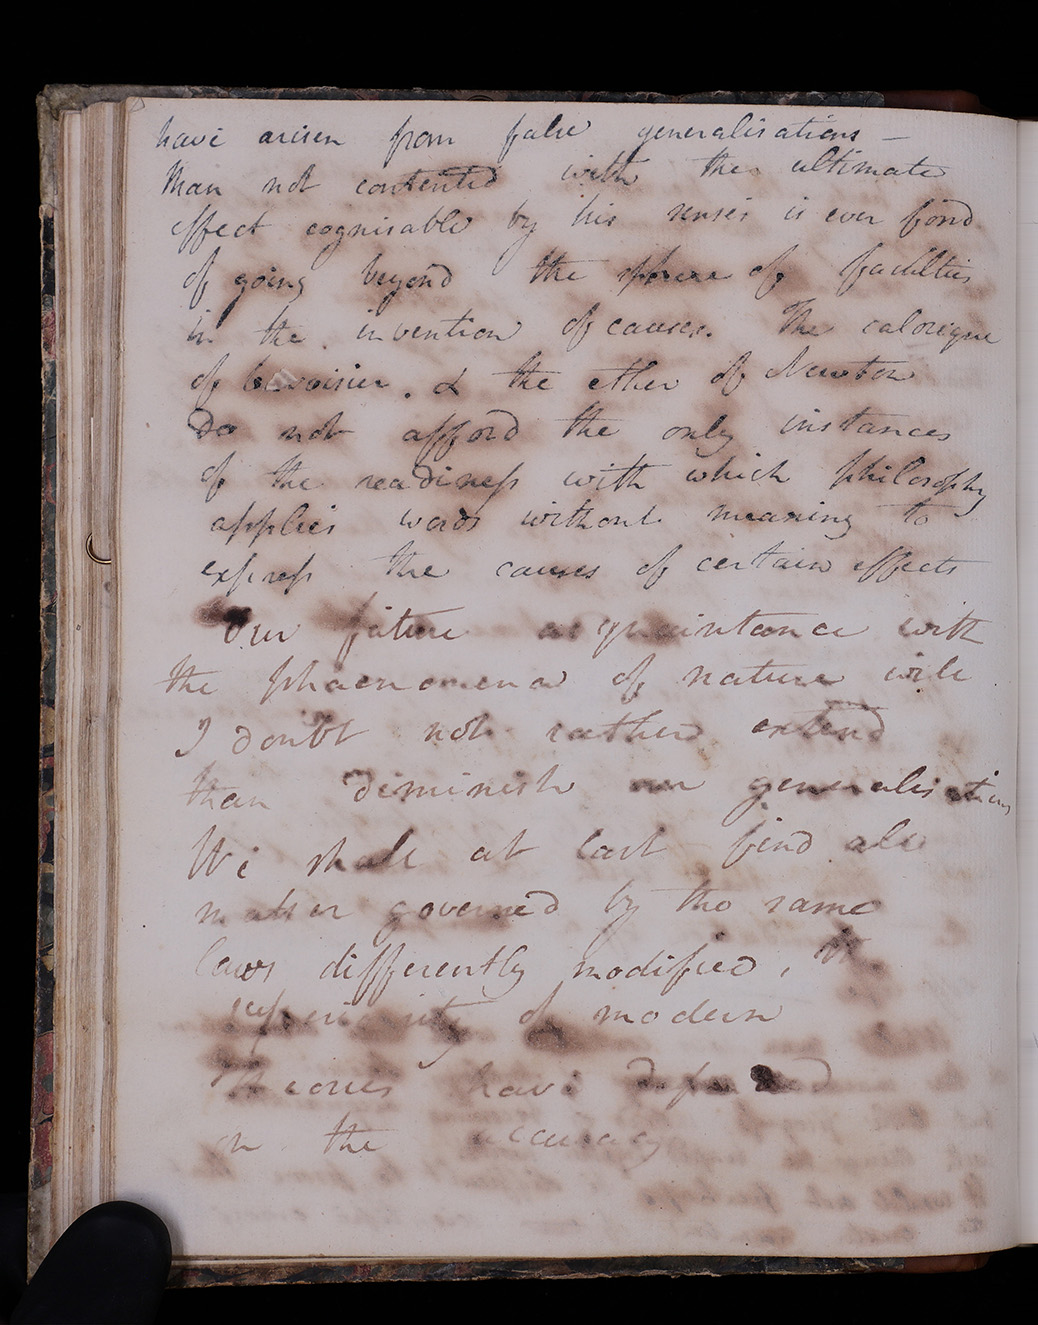 have arisen from false generalisations —
Man not contented with the ultimate
effect cognisable by his senses is ever fond
of going beyond the sphere of faculties
in the invention of causes. The calorique
of Lavoisier. & the ether of Newton
do not afford the only instances
of the readiness with which philosophy
applies words without meaning to
express the causes of certain effects
Our future acquaintance with
the phaenomena of nature will
I doubt not rather extend
than diminish our generalisations
We shall at last find all
matter governed by the same
laws differently modified, The
superiority of modern
Theories have depended
on the accuracy